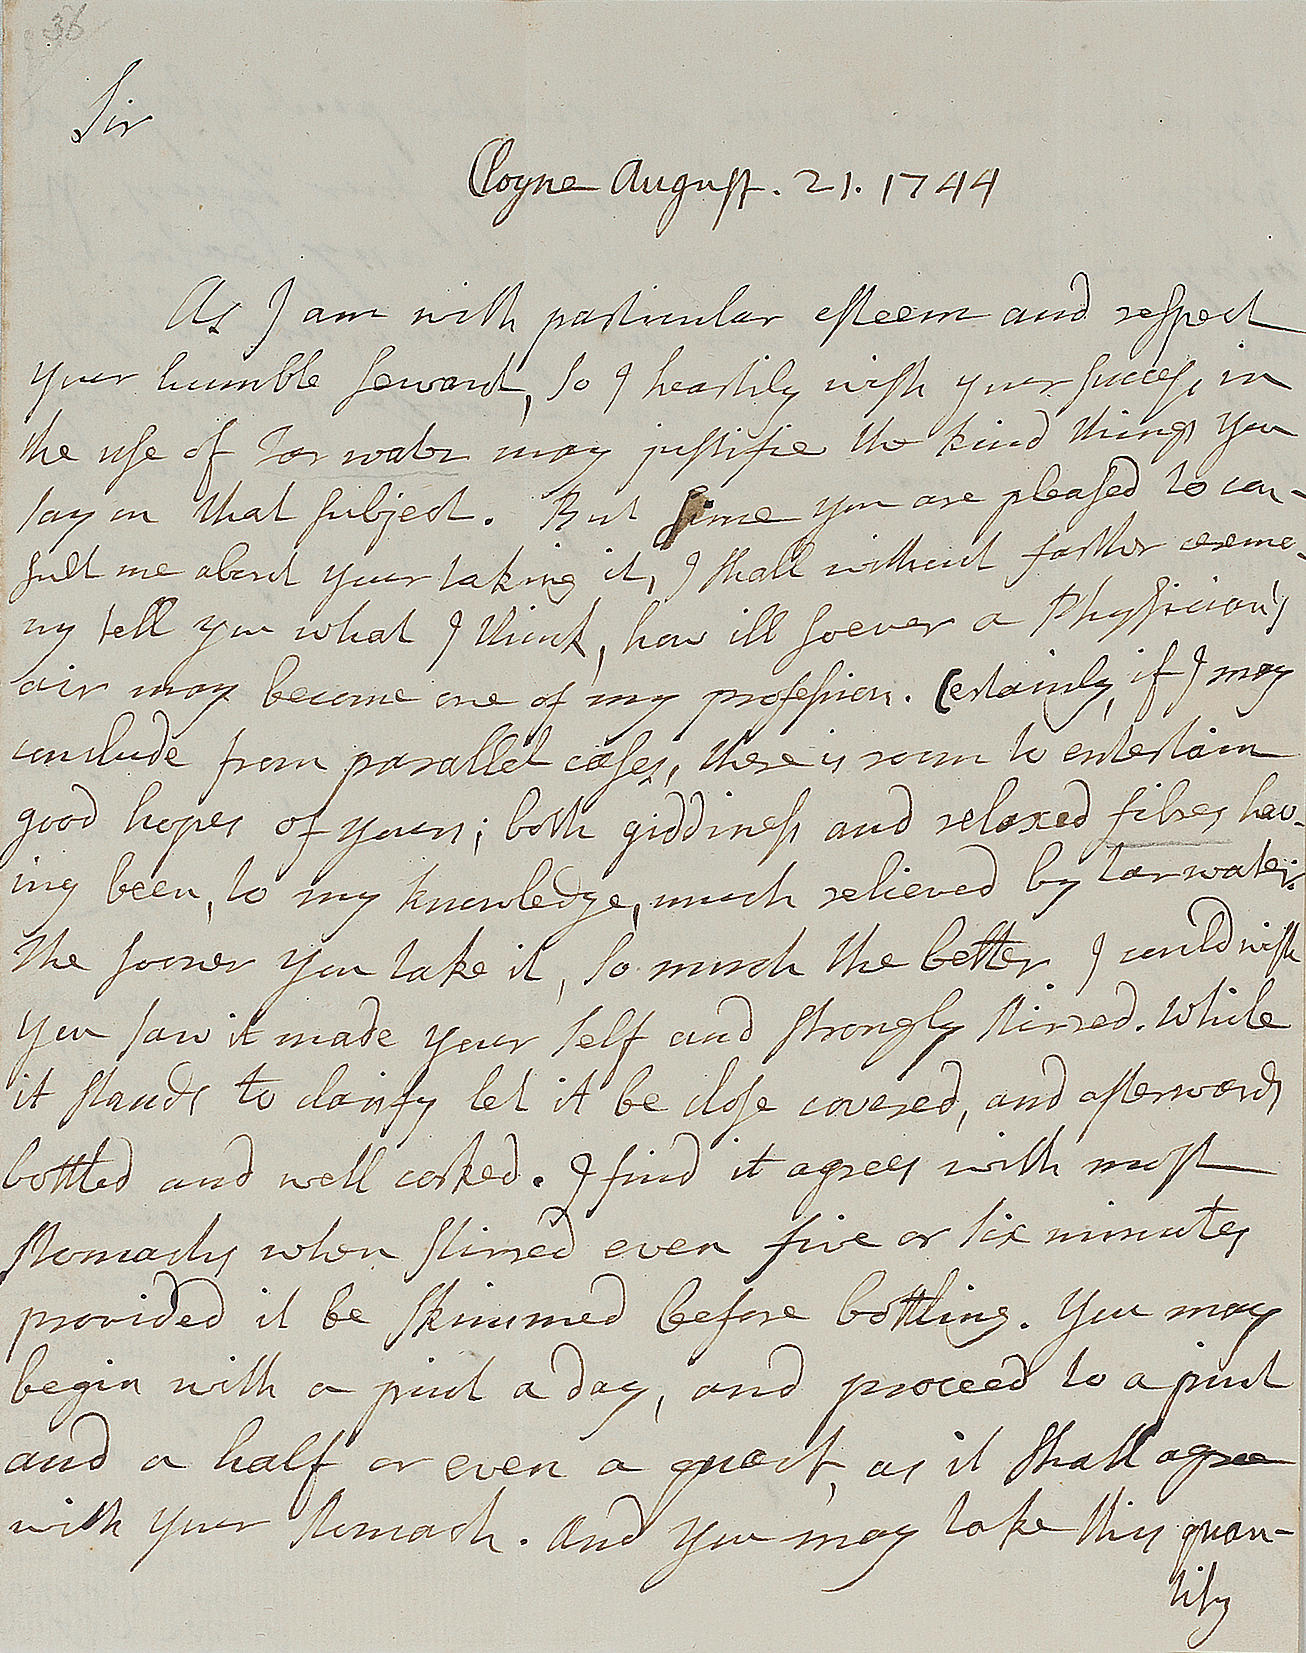 36
Sir
Cloyne August. 21. 1744
As I am with particular esteem and respect
your humble servant, so I heartily wish your success in
the use of Tar water may justifie the kind things you
say on that subject. But since you are pleased to con-
sult me about your taking it, I shall without farther ceremo-
ny tell you what I think, how ill soever a Physician's
air may become one of my profession. Certainly, if I may
conclude from parallel cases, there is room to entertain
good hopes of yours; both giddiness and relaxed fibres hav-
ing been, to my knowledge, much relieved by tar water.
The sooner you take it, so much the better. I could wish
you saw it made your self and strongly stirred. While
it stands to clarify let it be close covered, and afterwards
bottled and well corked. I find it agrees with most
stomachs when stirred even five or six minutes
provided it be skimmed before bottling. You may
begin with a pint a day, and proceed to a pint
and a half or even a quart, as it shall agree
with your stomach. And you may take this quan-
tity